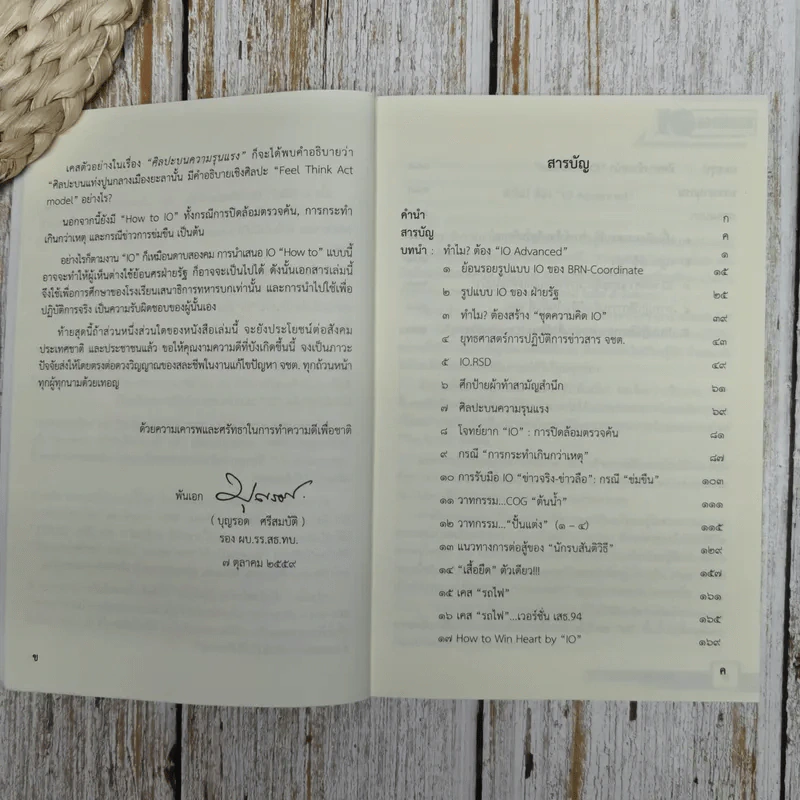 เคสตัวอย่างในเรื่อง "ศิลปะบนความรุนแรง" ก็จะได้พบคำอธิบายว่า
"ศิลปะบนแท่งปูนกลางเมืองยะลานั้น มีคำอธิบายเชิงศิลปะ "Feel Think Act
model" อย่างไร?
นอกจากนี้ยังมี "How to IO" ทั้งกรณีการปิดล้อมตรวจค้น, การกระทำ
เกินกว่าเหตุ และกรณีข่าวการข่มขืน เป็นต้น
อย่างไรก็ตามงาน "IO" ก็เหมือนดาบสองคม การนำเสนอ IO "How to" แบบนี้
อาจจะทำให้ผู้เห็นต่างใช้ย้อนศรฝ่ายรัฐ ก็อาจจะเป็นไปได้ ดังนั้นเอกสารเล่มนี้
จึงใช้เพื่อการศึกษาของโรงเรียนเสนาธิการทหารบกเท่านั้น และการนำไปใช้เพื่อ
ปฏิบัติการจริง เป็นความรับผิดชอบของผู้นั้นเอง
ท้ายสุดนี้ถ้าส่วนหนึ่งส่วนใดของหนังสือเล่มนี้ จะยังประโยชน์ต่อสังคม
ประเทศชาติ และประชาชนแล้ว ขอให้คุณงามความดีที่บังเกิดขึ้นนี้ จงเป็นภาวะ
ปัจจัยส่งให้โดยตรงต่อดวงวิญญาณของสละชีพในงานแก้ไขปัญหา จชต. ทุกถ้วนหน้า
ทุกผู้ทุกนามด้วยเทอญ
ด้วยความเคารพและศรัทธาในการทำความดีเพื่อชาติ
พันเอก
( บุญรอด ศรีสมบัติ )
รอง ผบ.รร.สธ.ทบ.
๗ ตุลาคม ๒๕๕๙
ข
สารบัญ
คำนำ ก
สารบัญ ค
บทนำ : ทำไม? ต้อง "IO Advanced" ๑
๑ ย้อนรอยรูปแบบ IO ของ BRN-Coordinate ๑๕
๒ รูปแบบ IO ของ ฝ่ายรัฐ ๒๕
๓ ทำไม? ต้องสร้าง "ชุดความคิด IO" ๓๙
๔ ยุทธศาสตร์การปฏิบัติการข่าวสาร จชต. ๔๓
๕ IO.RSD ๔๙
๖ ศึกป้ายผ้าท้าสามัญสำนึก ๖๑
๗ ศิลปะบนความรุนแรง ๖๙
๘ โจทย์ยาก "IO" : การปิดล้อมตรวจค้น ๘๑
๙ กรณี "การกระทำเกินกว่าเหตุ" ๘๗
๑๐ การรับมือ IO "ข่าวจริง-ข่าวลือ": กรณี "ข่มขืน" ๑๐๓
๑๑ วาทกรรม...COG "ต้นน้ำ" ๑๑๑
๑๒ วาทกรรม..."ปั้นแต่ง" (๑ – ๔) ๑๑๕
๑๓ แนวทางการต่อสู้ของ "นักรบสันติวิธี" ๑๒๙
๑๔ "เสื้อยืด" ตัวเดียว!!! ๑๕๗
๑๕ เคส "รถไฟ" ๑๖๑
๑๖ เคส "รถไฟ"...เวอร์ชั่น เสธ.94 ๑๖๕
๑๗ How to Win Heart by "IO" ๑๖๙
ค